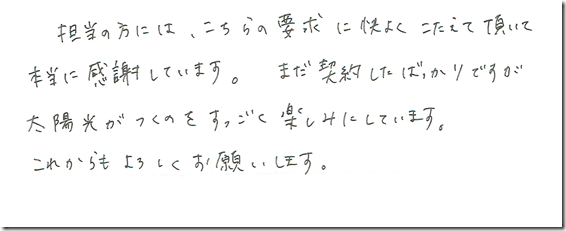 担当の方には、こちらの要求に快よくこたえて頂いて
本当に感謝しています。 まだ契約したばっかりですが
太陽光がつくのをすっごく楽しみにしています。
これからもよろしくお願いします。